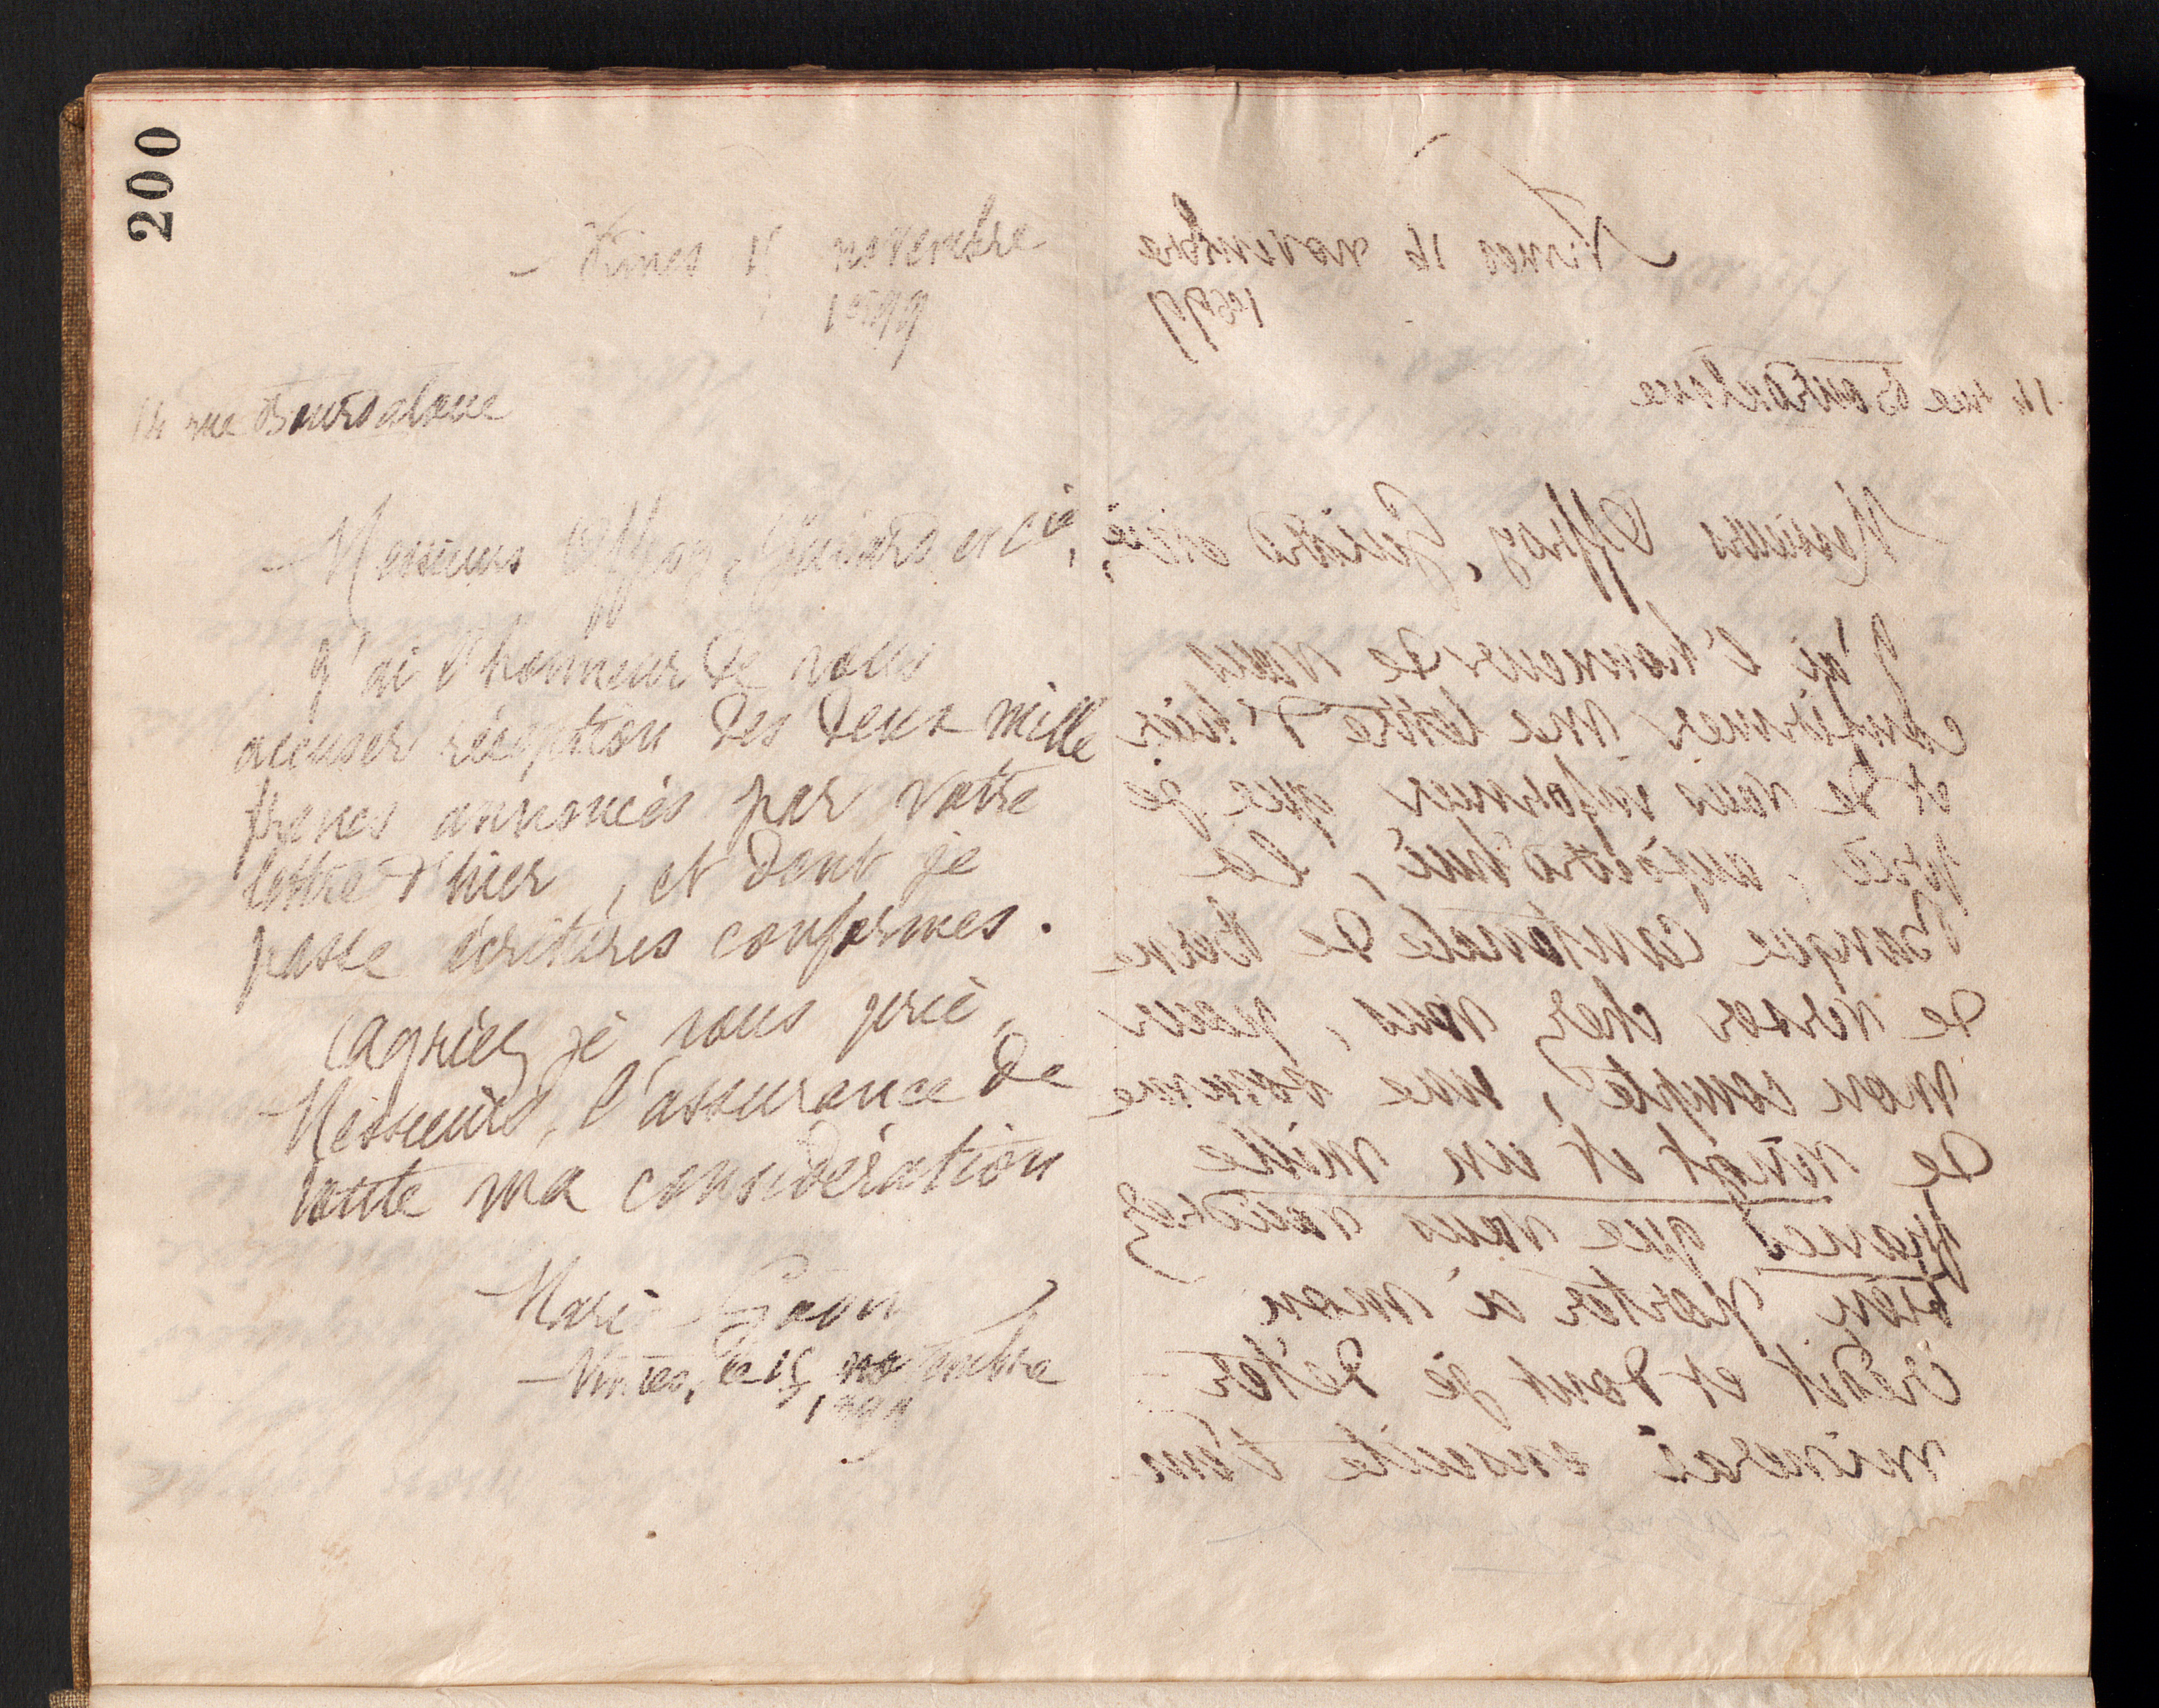 200
Nîmes 15 novembre
1899
14 rue Bourdaloue
Messieurs Offroy, Guiard et Cie,
J'ai l'honneur de vous
accuser réception des deux mille
francs annoncés par votre
lettre d'hier, et dont je
passe écritures conformes.
Agréez je vous prie,
Messieurs, l'assurance de
toute ma considération
Marie
Nîmes, le 15 novembre
1899
Nîmes 16 novembre
1899
14 rue Bourdaloue
Messieurs Offroy, Guiard et Cie,
J'ai l'honneur de vous
confirmer ma lettre d'hier
et de vous informer que je
prie, aujourd'hui, la
Banque Cantonale de Berne
de verser chez vous, pour
mon compte, une somme
de vingt et un mille
francs que vous voudrez
bien porter à mon
crédit et dont je déter-
minerai ensuite l'em-